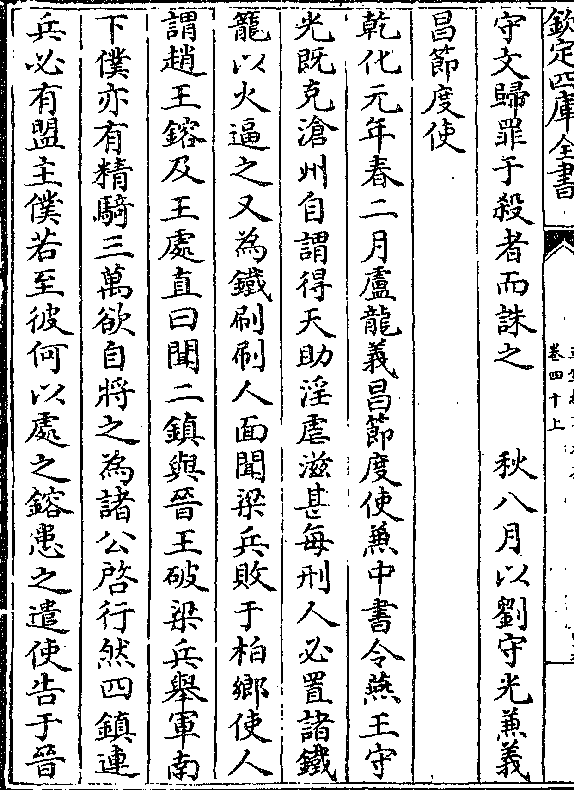 欽定四庫全書
卷四十上
守文歸罪于殺者而誅之　秋八月以劉守光兼義
昌節度使
乾化元年春二月盧龍義昌節度使兼中書令燕王守
光既克滄州自謂得天助淫虐滋甚每刑人必置諸鐵
籠以火逼之又為鐵刷刷人面聞梁兵敗于柏鄉使人
謂趙王鎔及王處直曰聞二鎮與晉王破梁兵舉軍南
下僕亦有精騎三萬欲自將之為諸公啓行然四鎮連
兵必有盟主僕若至彼何以處之鎔患之遣使告于晉